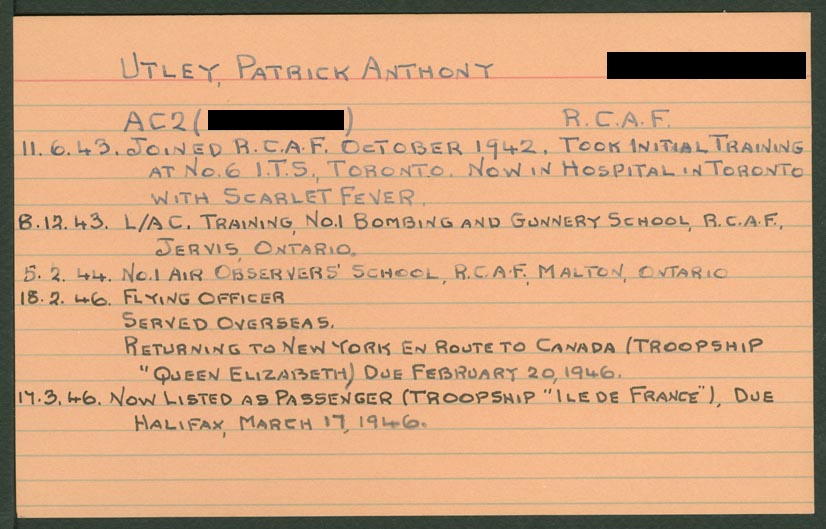 UTLEY, PATRICK ANTHONY
AC2 ( ) R.C.A.F.
11.6.43. JOINED R.C.A.F. OCTOBER 1942. TOOK INITIAL TRAINING
AT NO.6 I.T.S., TORONTO. NOW IN HOSPITAL IN TORONTO
WITH SCARLET FEVER.
8.12.43. L/AC. TRAINING, NO.1 BOMBING AND GUNNERY SCHOOL, R.C.A.F.,
JERVIS, ONTARIO.
5.2.44. NO.1 AIR OBSERVERS' SCHOOL, R.C.A.F., MALTON, ONTARIO
18.2.46. FLYING OFFICER
SERVED OVERSEAS.
RETURNING TO NEW YORK EN ROUTE TO CANADA (TROOPSHIP
"QUEEN ELIZABETH) DUE FEBRUARY 20, 1946.
17.3.46. NOW LISTED AS PASSENGER (TROOPSHIP "ILE DE FRANCE"), DUE
HALIFAX, MARCH 17, 1946.